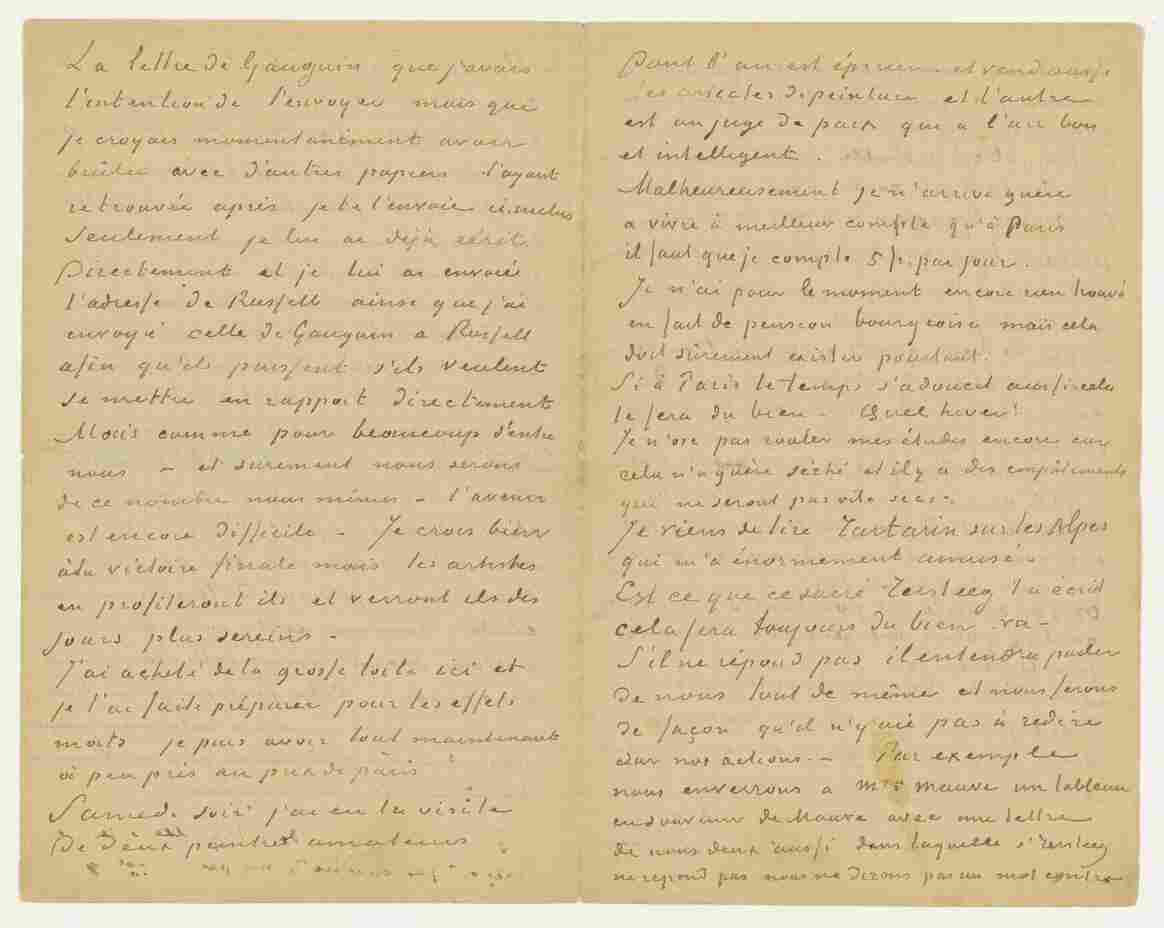 La lettre de Gauguin que j'avais
l'intention de t'envoyer mais que
je croyais momentanément avoir
brulée avec d'autres papiers l'ayant
retrouvée après je te l'envoie ci inclus
Seulement je lui ai déjà écrit
Directement et je lui ai envoié
l'adresse de Russell ainsi que j'ai
envoyé celle de Gauguin a Russell
afin qu'ils puissent s'ils veulent
se mettre en rapport directement
Mais comme pour beaucoup d'entre
nous – et surement nous serons
de ce nombre nous mêmes – l'avenir
est encore difficile – Je crois bien
à la victoire finale mais les artistes
en profiteront ils et verront ils des
jours plus sereins –
J'ai acheté de la grosse toile ici et
je l'ai faite préparer pour les effets
mats je puis avoir tout maintenant
à peu près au prix de Paris
Samedi soir j'ai eu la visite
De deux peintres amateurs
Dont l'un est épicier – et vend aussi
des articles de peinture et l'autre
est un juge de paix qui a l'air bon
et intelligent.
Malheureusement je n'arrive guère
a vivre à meilleur compte qu'à Paris
il faut que je compte 5 fr. par jour.
Je n'ai pour le moment encore rien trouvé
en fait de pension bourgeoise mais cela
doit surement exister pourtant.
Si à Paris le temps s'adoucit aussi cela
te fera du bien – Quel hiver!
Je n'ose pas rouler mes études encore car
cela n'a guère séché et il y a des empâtements
qui ne seront pas vite secs –
Je viens de lire Tartarin sur les Alpes
qui m'a énormement amusé –
Est ce que ce sacré Tersteeg t'a écrit
cela fera toujours du bien va –
S'il ne répond pas il entendra parler
de nous tout de même et nous ferons
de façon qu'il n'y aie pas à redire
sur nos actions – Par exemple
nous enverrons a mme mauve un tableau
en souvenir de Mauve avec une lettre
de nous deux aussi dans laquelle si Tersteeg
ne repond pas nous ne dirons pas un mot contre